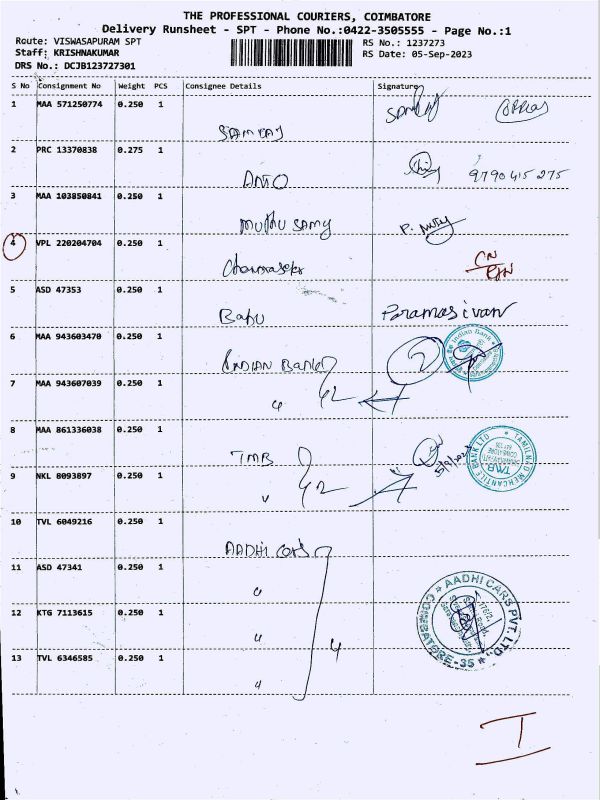 THE PROFESSIONAL COURIERS, COIMBATORE
Delivery Runsheet - SPT - Phone No.:0422-3505555 - Page No.:1
Route: VISWASAPURAM SPT
Staff: KRISHNAKUMAR
DRS No.: DCJB123727301
RS No.: 1237273
RS Date: 05-Sep-2023
S No Consignment No Weight PCS Consignee Details Signature
1 MAA 571250774 0.250 1
2 PRC 13370838 0.275 1
ANTO 9790415275
3 MAA 103850841 0.250 1
MUTHU SAMY P. Muthy
4 VPL 220204704 0.250 1
5 ASD 47353 0.250 1
Babu Paramasivan
6 MAA 943603470 0.250 1
INDIAN BANK Indian Bank
7 MAA 943607039 0.250 1
8 MAA 861336038 0.250 1
TMB 5/9/2023 TAMILNAD MERCANTILE BANK LTD TMB
9 NKL 8093897 0.250 1
10 TVL 6049216 0.250 1
AADHI CARS
11 ASD 47341 0.250 1
12 KTG 7113615 0.250 1
AADHI CARS PVT. LTD. COIMBATORE-35
13 TVL 6346585 0.250 1
4
I